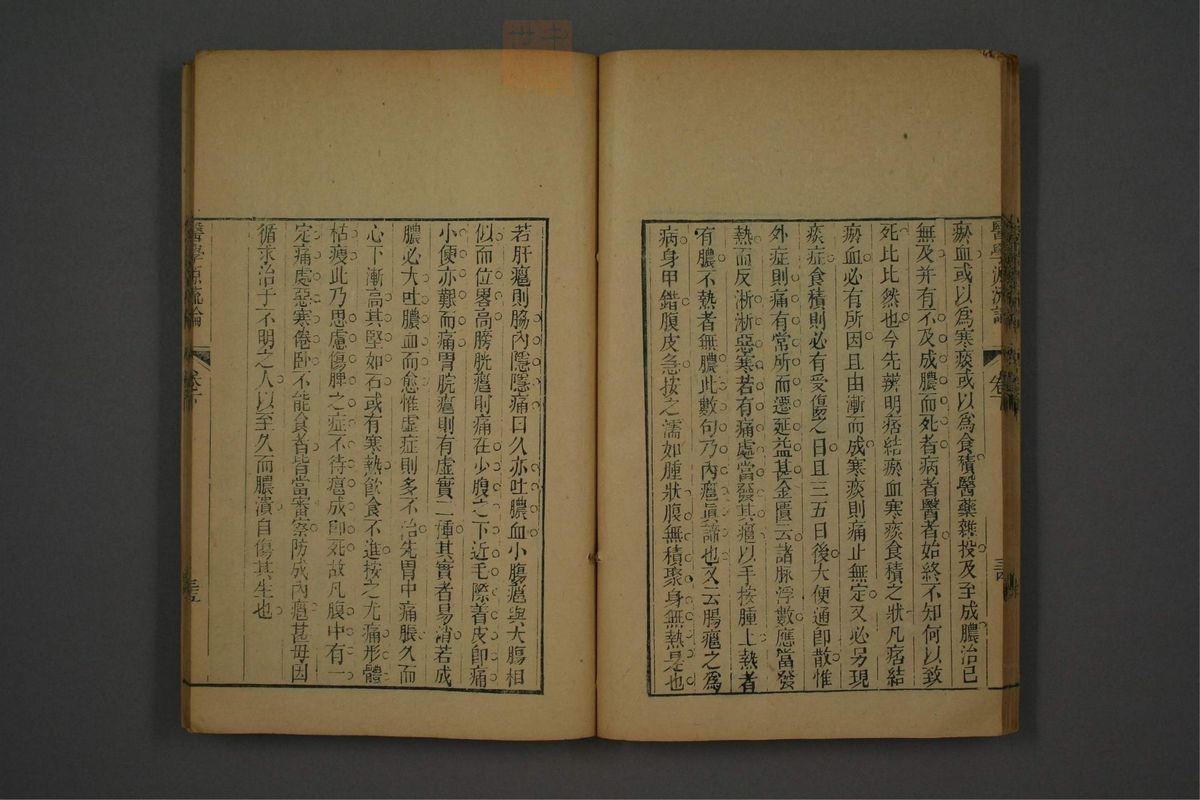 醫學源流論
卷下
三四
瘀血或以爲寒痰或以爲食積醫藥雜投及至成膿治已
無及并有不及成膿而死者病者醫者始終不知何以致
死比比然也今先辨明痞結瘀血寒痰食積之狀凡痞結
瘀血必有所因且由漸而成寒痰則痛止無定又必另現
痰症食積則必有受傷之日且三五日後大便通卽散惟
外症則痛有常所而遷延益甚金匱云諸脈浮數應當發
熱而反淅淅惡寒若有痛處當發其癰以手按腫上熱者
有膿不熱者無膿此數句乃內癰眞諦也又云腸癰之爲
病身甲錯腹皮急按之濡如腫狀腹無積聚身無熱是也
若肝癰則脇內隱隱痛日久亦吐膿血小腸癰與大腸相
似而位畧高膀胱癰則痛在少腹之下近毛際着皮卽痛
小便亦艱而痛胃脘癰則有虛實二種其實者易消若成
膿必大吐膿血而愈惟虛症則多不治先胃中痛脹久而
心下漸高其堅如石或有寒熱飲食不進按之尤痛形體
枯瘦此乃思慮傷脾之症不待癰成卽死故凡腹中有一
定痛處惡寒倦卧不能食者皆當審察防成內癰甚毋因
循求治于不明之人以至久而膿潰自傷其生也
醫學源流論
卷下
三五